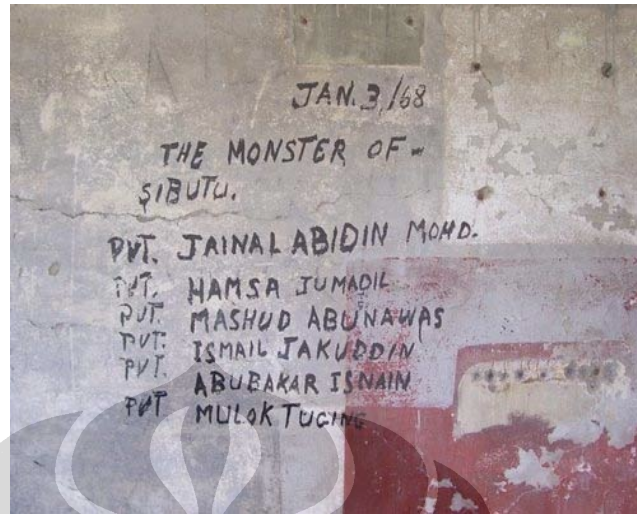 JAN. 3, /68
THE MONSTER OF -
SIBUTU.
PVT. JAINAL ABIDIN MOHD.
PVT. HAMSA JUMADIL
PVT. MASHUD ABUNAWAS
PVT. ISMAIL JAKUDDIN
PVT. ABUBAKAR ISNAIN
PVT MULOK TUGING